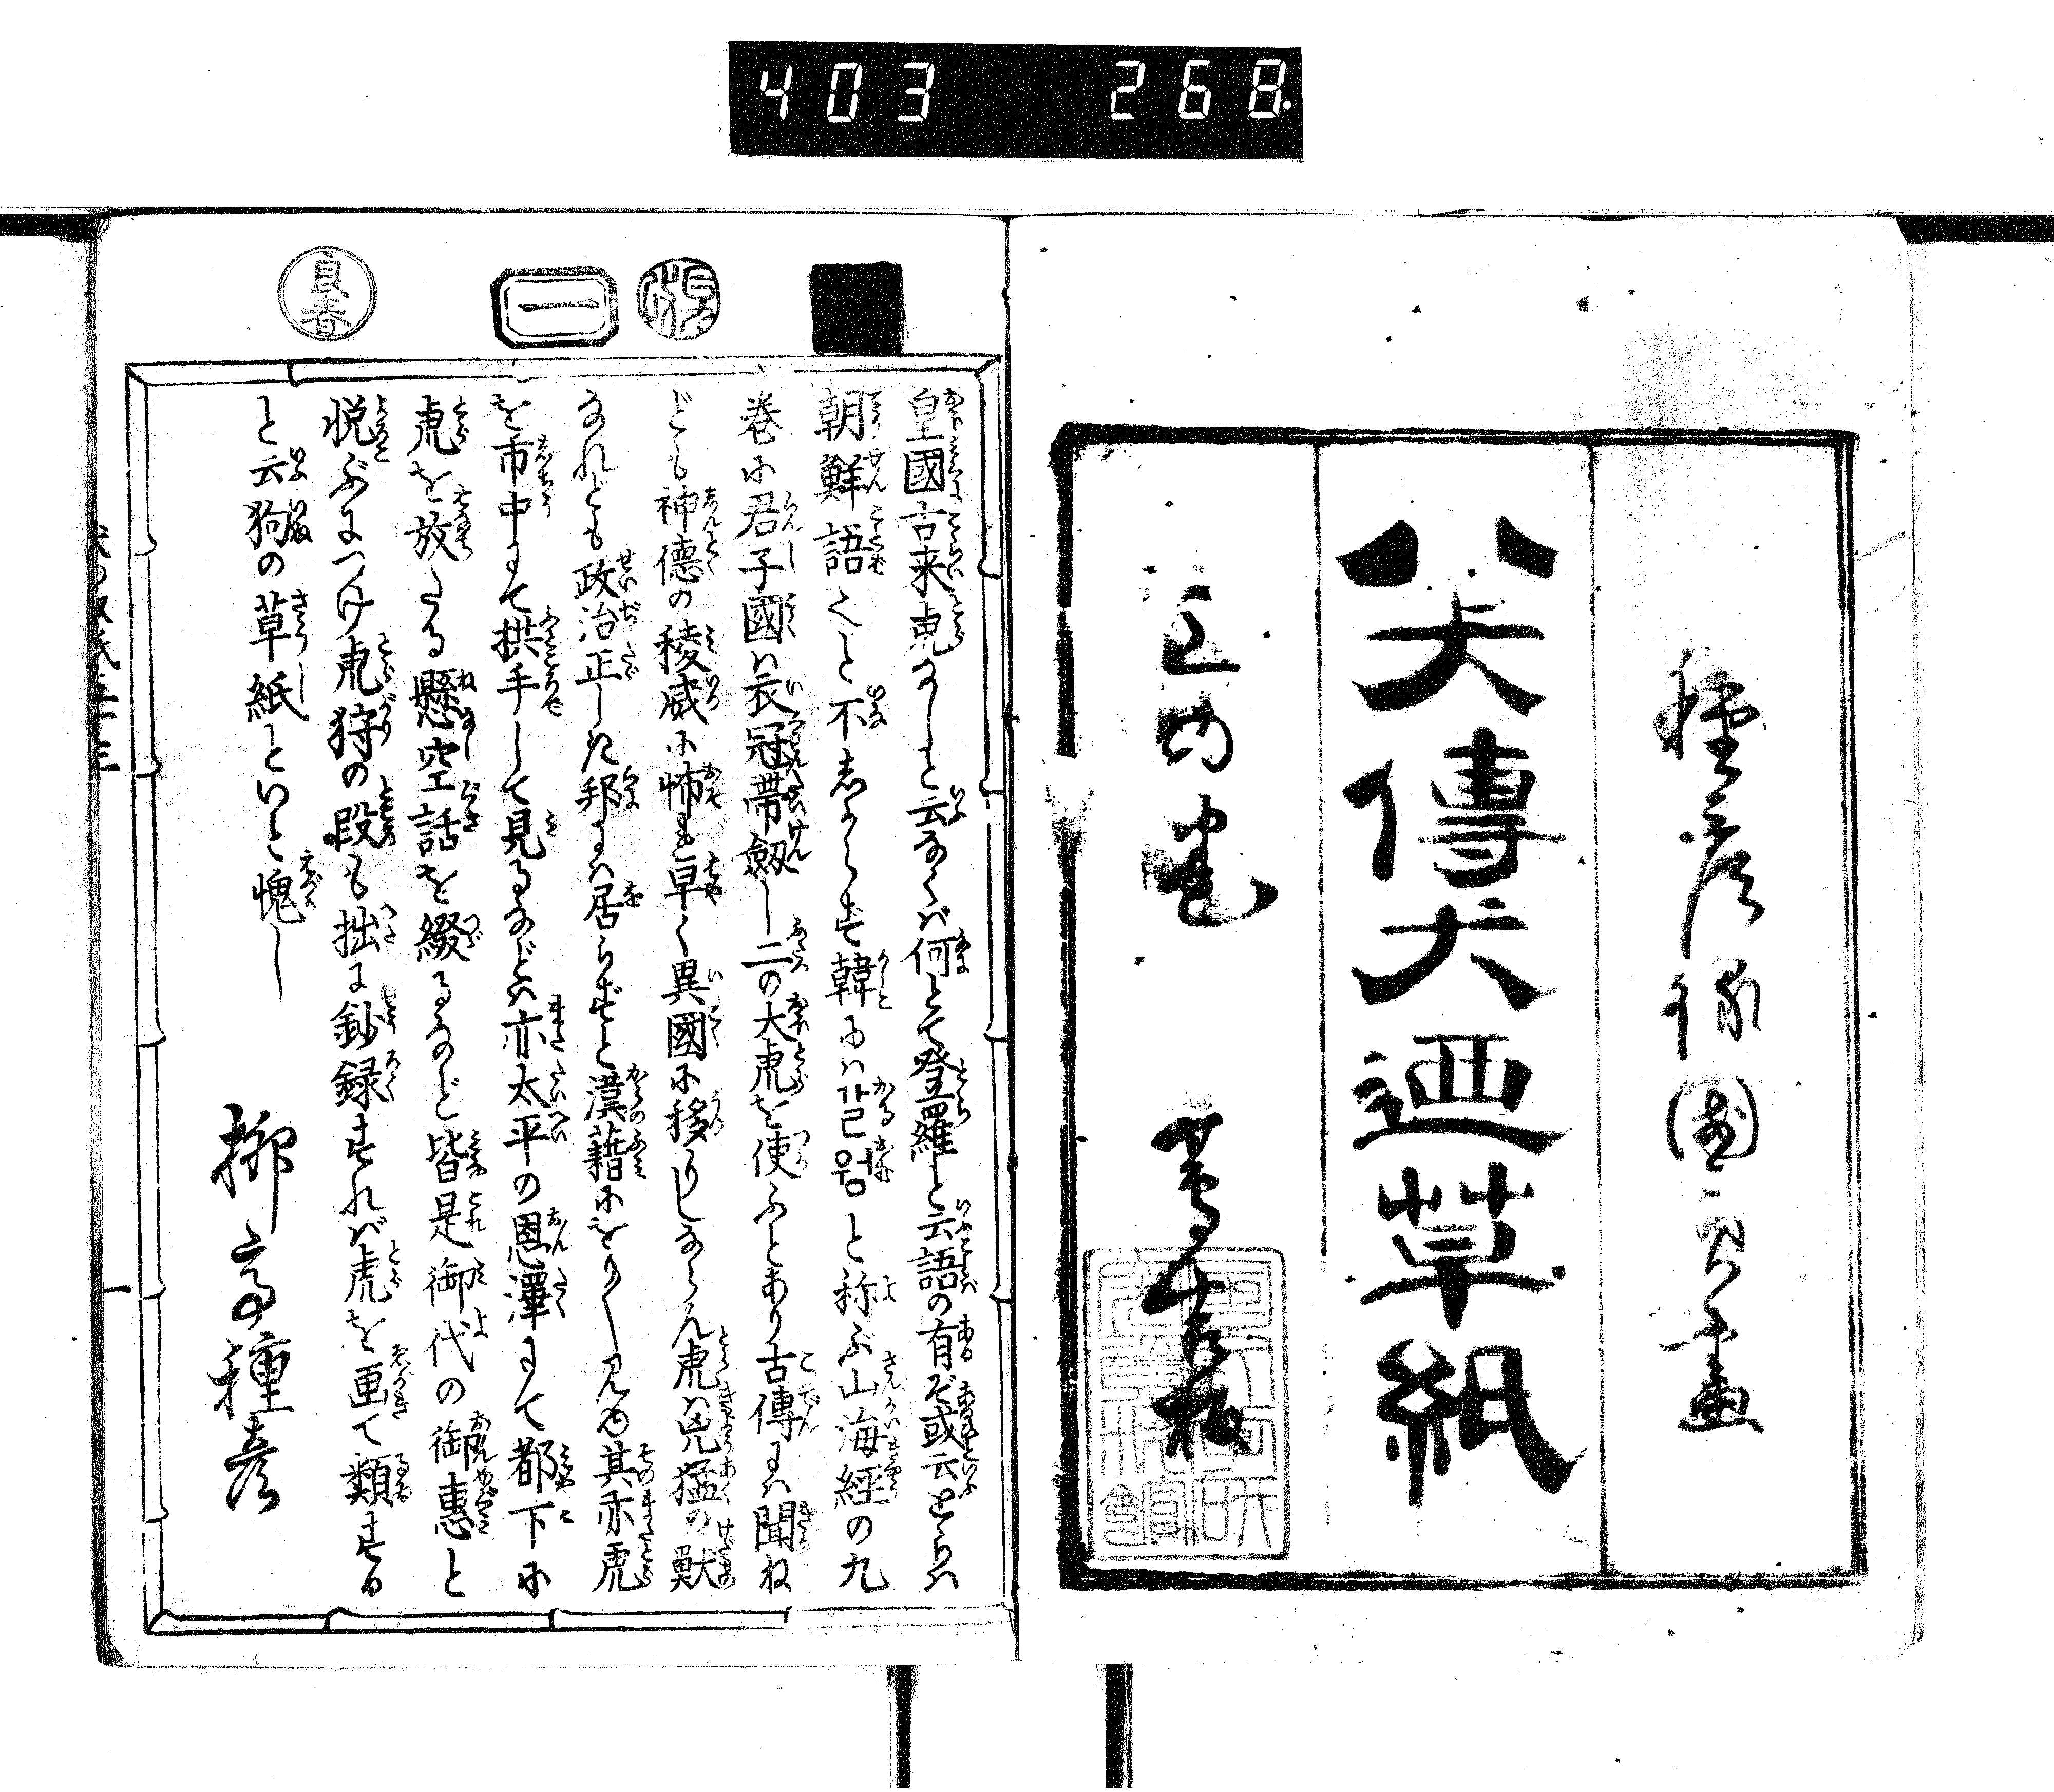 403 268.
種彦録 国貞画
八犬傳犬廼草紙
蔦吉板
一
皇國古来虎なしと云ならば何とて登羅と云語の有ぞ或云とらハ
朝鮮語くと不しからず韓にハ갈웜と称ぶ山海経の九
巻に君子國ハ衣冠帯劔し二の大虎を使ふとあり古傳にハ聞ね
ども神徳の稜威に怖ミ早く異國に移りしならん虎ハ兇猛の獣
なれども政治正しき邦にハ居らずと漢籍にをりし見ゆ其亦虎
を市中にて拱手して見るなどハ亦太平の恩澤にて都下に
虎を放たる懸空話を綴るなど皆是御代の御惠と
悦ぶにつけ虎狩の段も拙に鈔録すれバ虎を画て類する
と云狗の草紙といと愧し
柳亭種彦
良春